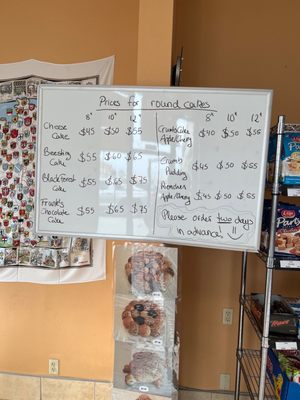 Prices for round cakes
8" 10" 12"
Cheese $45 $50 $55
Cake
Beesting $55 $60 $65
Cake
Black Forest $55 $65 $75
Cake
Frank's
Chocolate $55 $65 $75
Cake
8" 10" 12"
Crumb Cake $40 $50 $55
Apple/Cherry
Crumb $45 $50 $55
Pudding
Ranches
Apple/Cherry $45 $50 $55
Please order two days
in advance!